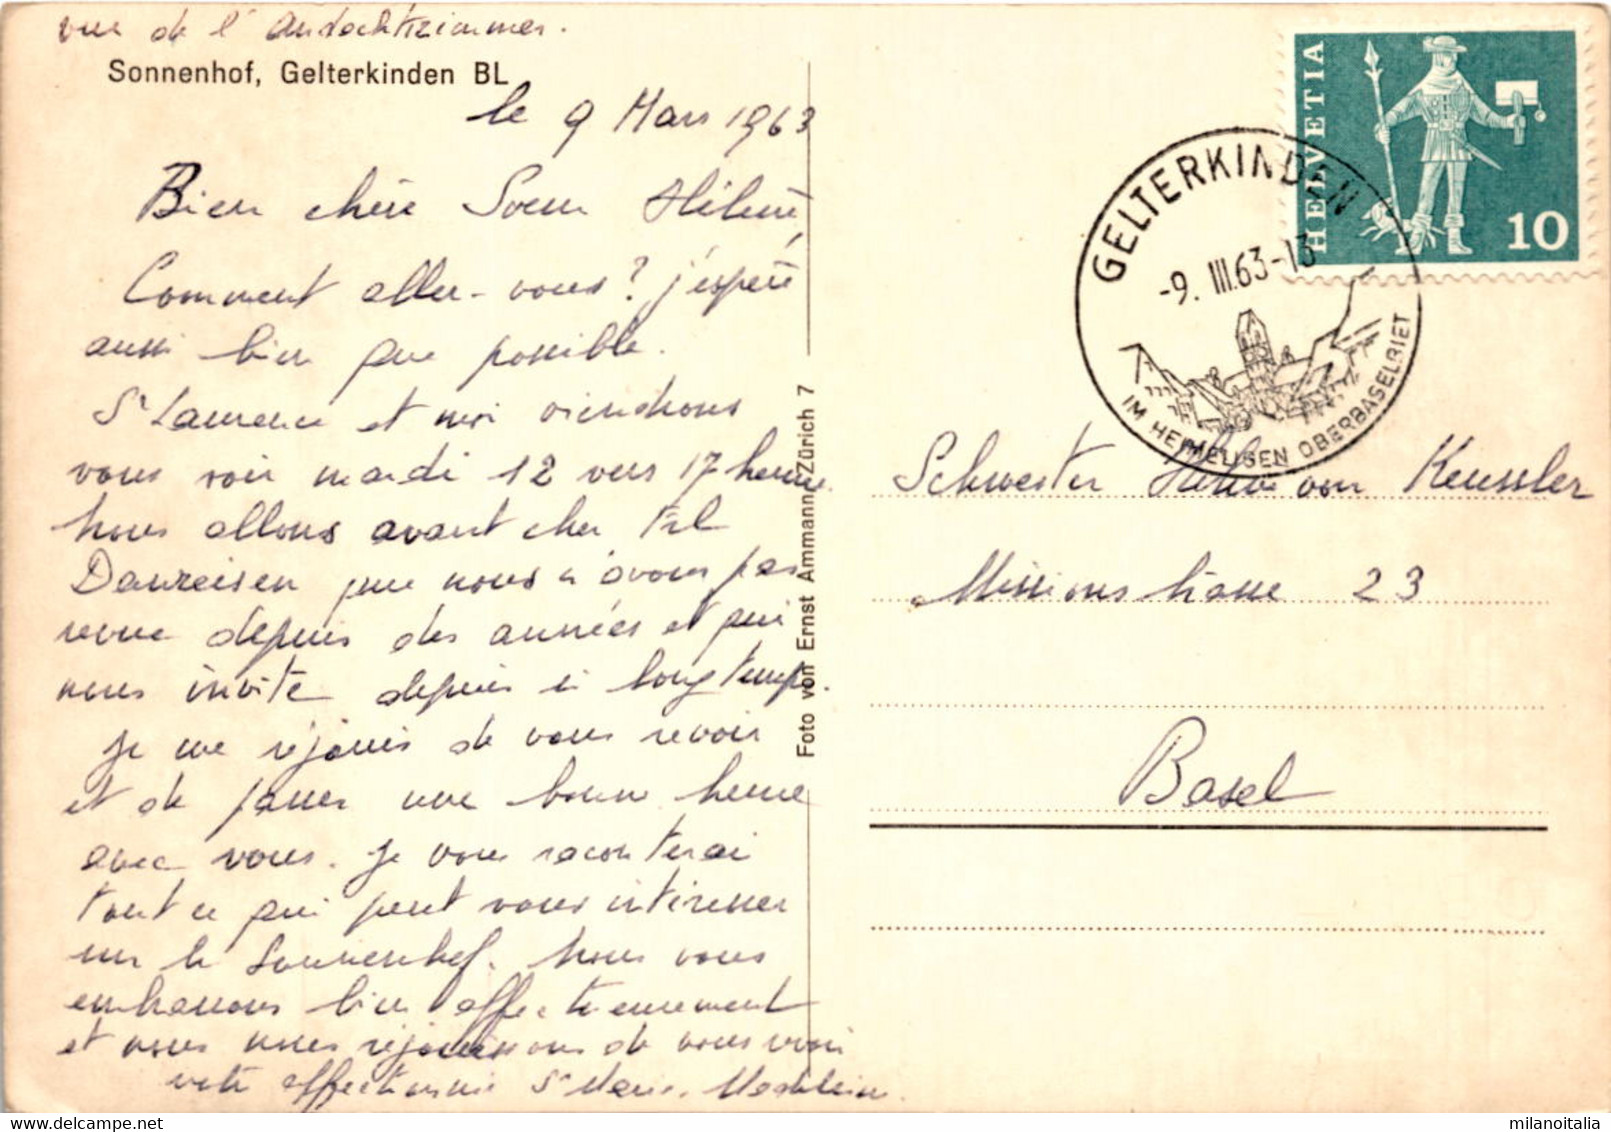 vue de l'Andachtszimmer.
Sonnenhof, Gelterkinden BL
le 9 Mars 1963
Bien chère Soeur Hélène,
Comment aller-vous? j'espère
aussi bien que possible.
Sr Laurence et moi viendrons
vous voir mardi 12 vers 17 heures.
nous allons avant chez Frl
que nous n'avons pas
revue depuis des années et qui
nous invite depuis si longtemps.
Je me réjouis de vous revoir
et de passer une bonne heure
avec vous. Je vous raconterai
tout ce qui peut vous intéresser
sur le Sonnenhof. Nous vous
embrassons bien affectueusement
et nous nous réjouissons de vous voir
votre affectionnée Sr Marie-Madeleine.
Foto von Ernst Ammann, Zürich 7
HELVETIA
HELVETIA
10
GELTERKINDEN
-9. III. 63-13
IM HEIMELIGEN OBERBASELBIET
Schwester Hélène von Keussler
Missionsstrasse 23
Basel
milanoitalia